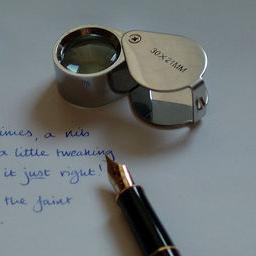 30X21MM
imes, a nib
a little tweaking
it just right!
the faint